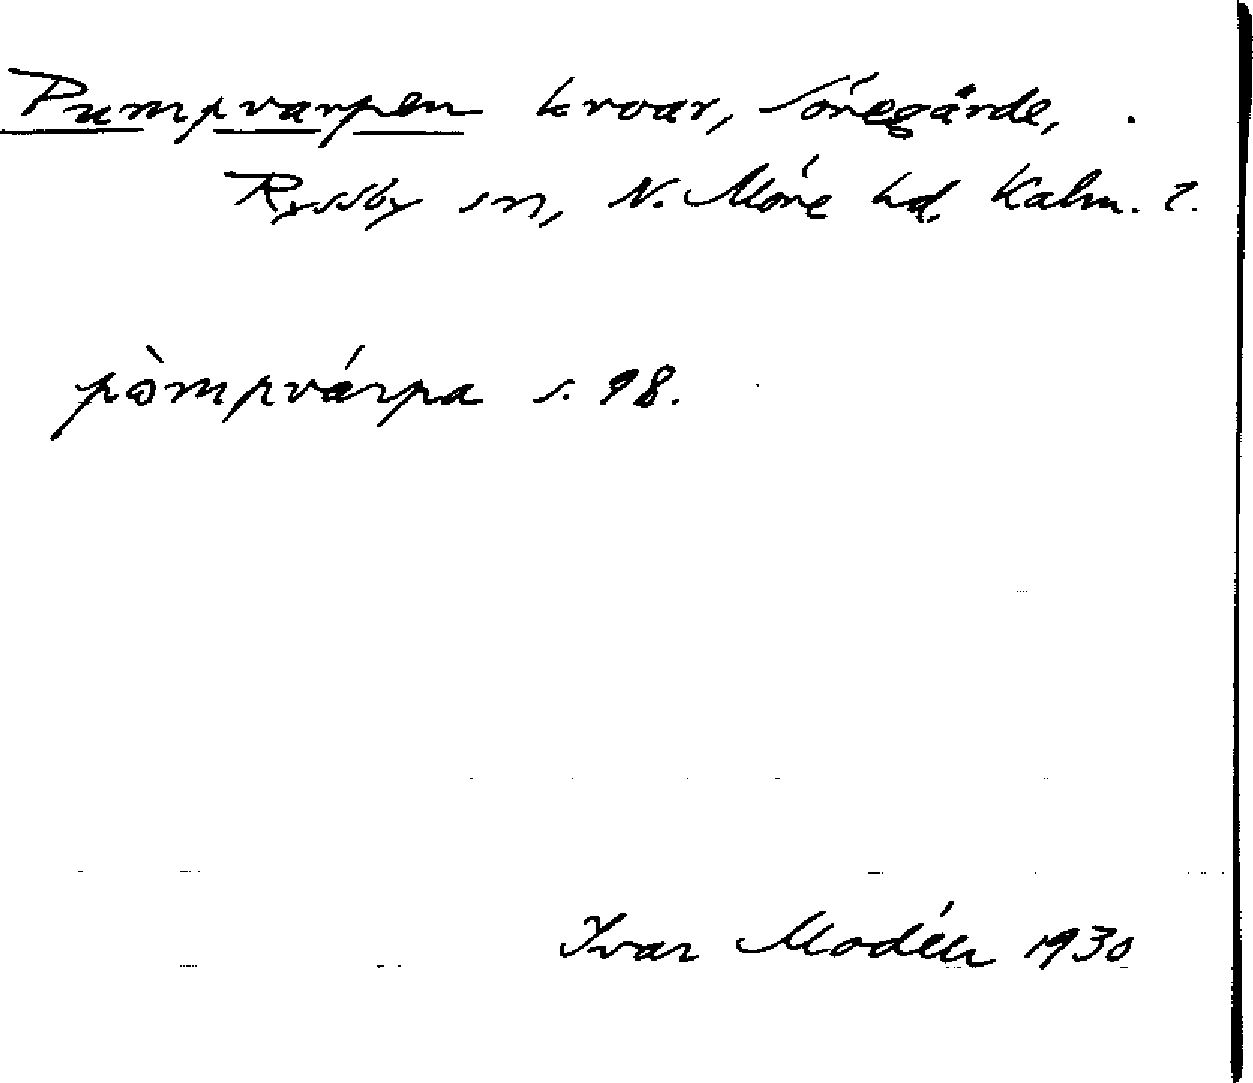 Pumpvarpen kvar, Söregärde,
Ryssby sn, N. Möre hd Kalm. l.
pòmpvárpa s. 98.
Ivar Modéer 1930